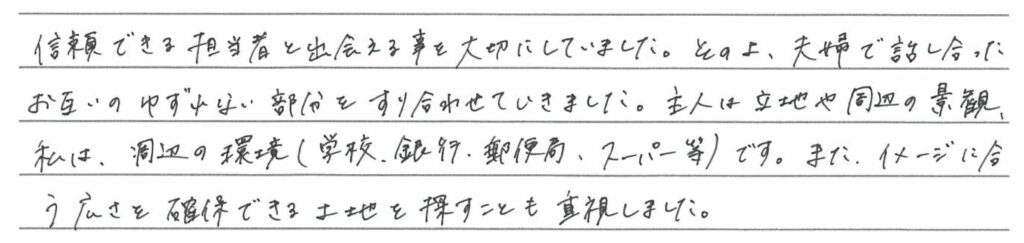 信頼できる担当者と出会える事を大切にしていました。その上、夫婦で話し合った
お互いのゆずれない部分をすり合わせていきました。主人は立地や周辺の景観、
私は、周辺の環境(学校、銀行、郵便局、スーパー等)です。また、イメージに合
う広さを確保できる土地を探すことも重視しました。